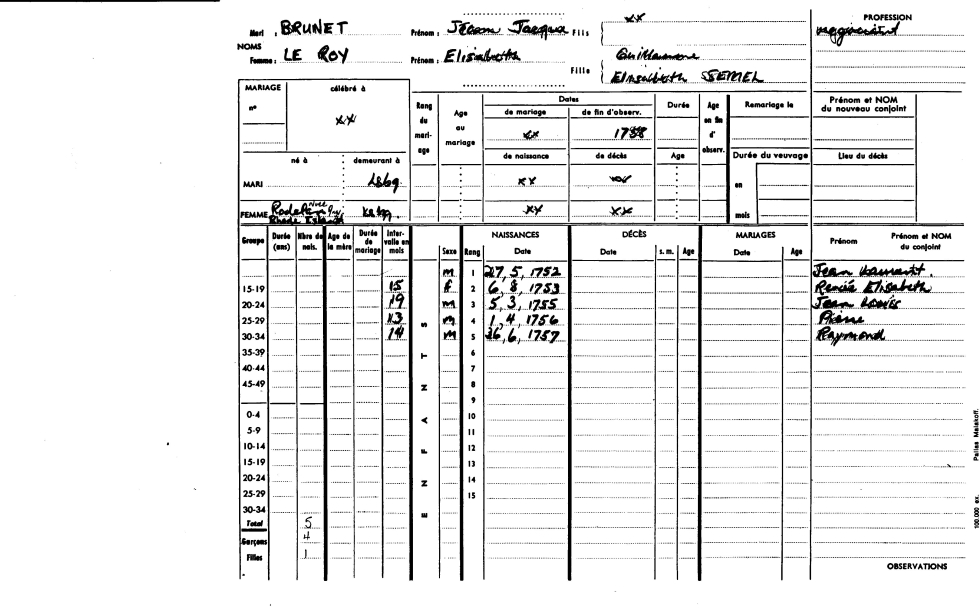 Mari : BRUNET Prénom : Jean Jacques Fils xx PROFESSION
NOMS
Femme : LE ROY Prénom : Elisabeth Fille Guillaumone
Elisabeth SEMEL
MARIAGE célébré à
n° xx
Rang du mariage
Age au mariage
Dates
de mariage de fin d'observ.
xx 1758
Durée
Age en fin d'observ.
Remariage le
Prénom et NOM du nouveau conjoint
né à demeurant à
de naissance de décès Age Durée du veuvage Lieu du décès
MARI Lsbg xx xx en
FEMME Rhode Island Lsbg. xx xx mois
Groupe Durée (ans) Nbre de nais. Age de la mère Durée de mariage Intervalle en mois
ENFANTS
Sexe Rang NAISSANCES Date DÉCÈS Date s. m. Age MARIAGES Date Age Prénom Prénom et NOM du conjoint
m 1 27, 5, 1752 Jean
15-19 15 f 2 6, 8, 1753 Renée Elisabeth
20-24 19 m 3 5, 3, 1755 Jean Louis
25-29 13 m 4 1, 4, 1756 Pierre
30-34 14 m 5 26, 6, 1757 Raymond
35-39 6
40-44 7
45-49 8
9
0-4 10
5-9 11
10-14 12
15-19 13
20-24 14
25-29 15
30-34
Total 5
Garçons 4
Filles 1
OBSERVATIONS
100.000 ex. Pallas Malakoff.